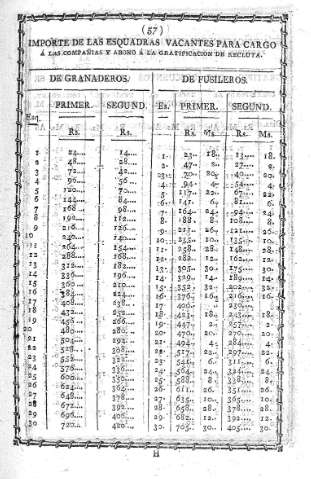 (57)
IMPORTE DE LAS ESQUADRAS VACANTES PARA CARGO
Á LAS COMPAÑIAS Y ABONO Á LA GRATIFICACION DE RECLUTA.
DE GRANADEROS. DE FUSILEROS.
PRIMER. SEGUND. Es. PRIMER. SEGUND.
Esq.
Rs. Rs. Rs. Ms. Rs. Ms.
1 24.... 14.... 1. 23.. 18. 13.... 18.
2 48.... 28.... 2. 47... 2. 27.... 2.
3 72.... 42.... 70.. 20. 40.... 20.
4 96.... 56... 4. 94... 4. 54.... 4.
5 120.... 70.... 5. 117.. 22. 67.... 22.
6 144.... 84.... 6. 141.. 6. 81.... 6.
7 168.... 98.... 7. 164.. 24. 94.... 24.
8 192.... 112.... 8. 188.. 8. 108.... 8.
9 216.... 126.... 9. 211.. 26. 121.... 26.
10 240.... 140.... 10. 235.. 10. 135.... 10.
11 264.... 154.... 11. 258.. 28. 148.... 28.
12 288.... 168.... 12. 282.. 12. 162.... 12.
13 312.... 182.... 13. 305.. 30. 175.... 30.
14 336.... 196.... 14. 329.. 14. 189.... 14.
15 360.... 210.... 15. 352.. 32. 202.... 32.
16 384.... 224.... 16. 376.. 16. 216.... 16.
17 408.... 238.... 17. 400... 230....
18 432.... 252.... 18. 423.. 18. 243.... 18.
19 456.... 266.... 19. 447... 2. 257.... 2.
20 480.... 280.... 20. 470.. 20. 270.... 20.
21 504.... 294.... 21. 494... 4. 284.... 4.
22 528.... 308.... 22. 517.. 22. 297.... 22.
23 552.... 322.... 23. 541... 6. 311.... 6.
24 576.... 336.... 24. 564.. 24. 324.... 24.
25 600.... 350.... 25. 588.. 8. 338.... 8.
26 624.... 364.... 26. 611.. 26. 351.... 26.
27 648.... 378.... 27. 635.. 10. 365.... 10.
28 672.... 392.... 28. 658.. 28. 378.... 28.
29 696.... 406.... 29. 682.. 12. 392.... 12.
30 720.... 420.... 30. 705.. 30. 405.... 30.
H